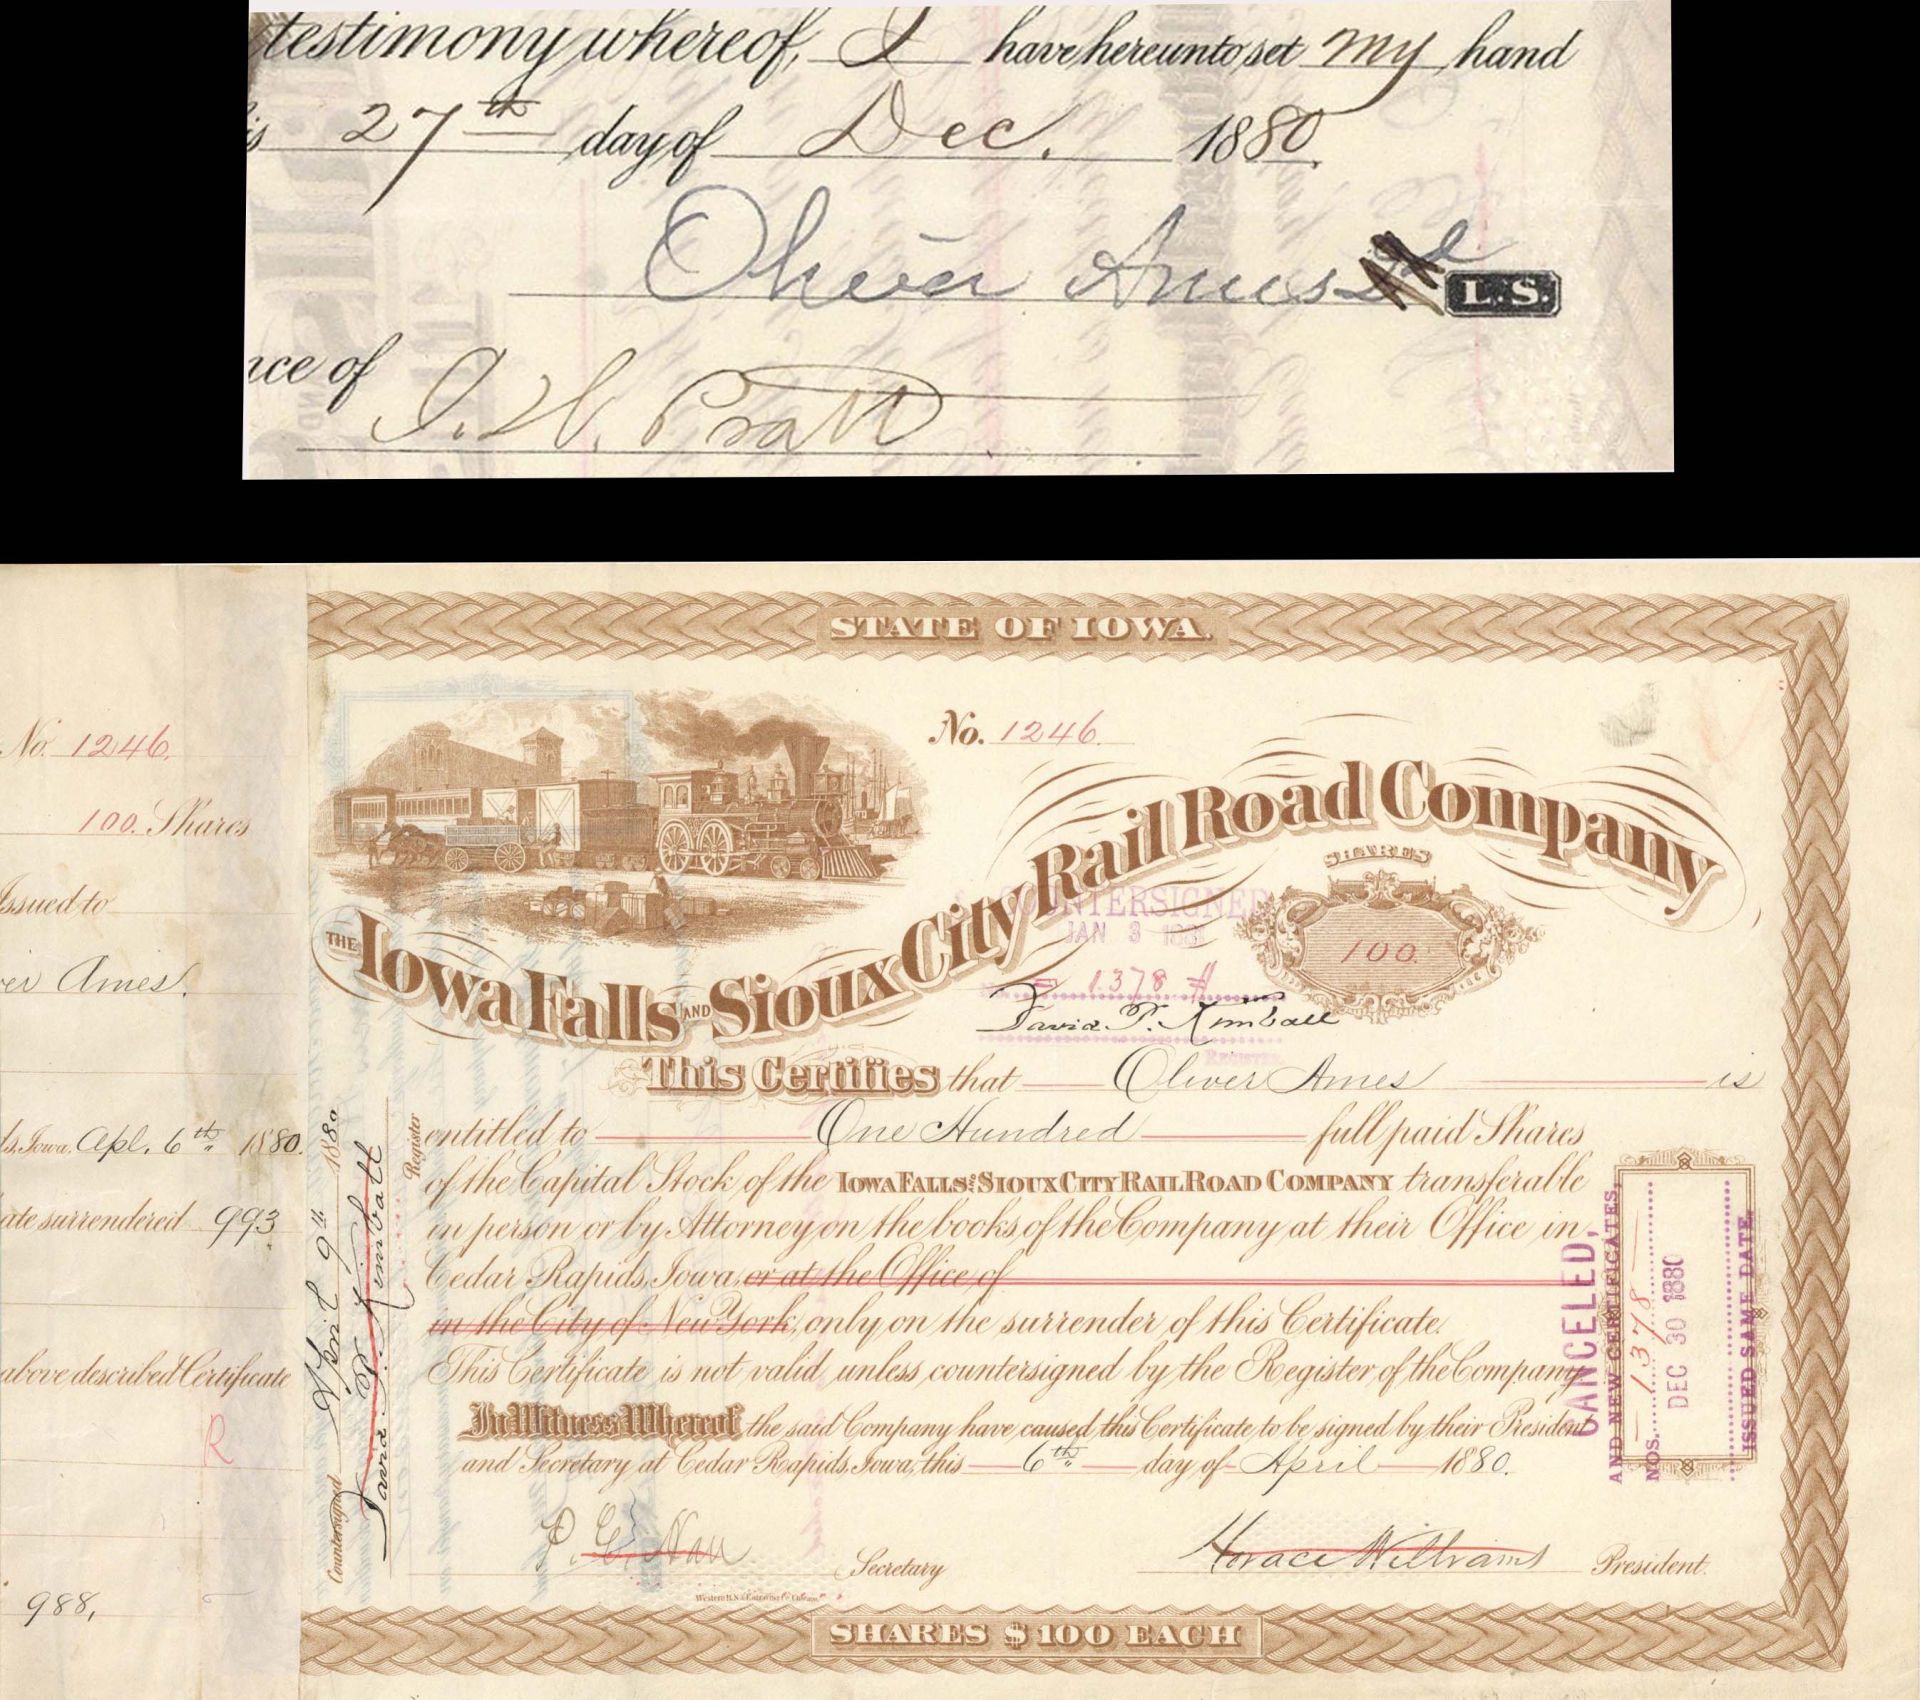 testimony whereof, I have hereunto set my hand
is 27th day of Dec. 1880.
Oliver Ames
L.S.
nce of I. W. Pratt
STATE OF IOWA.
No. 1246.
100. Shares
Issued to
er Ames.
ds, Iowa. Apl. 6th 1880.
ate surrendered 993
above described Certificate
R
988,
Countersigned April 9th 1880
David P. Kimball
Register
No. 1246.
THE IOWA FALLS AND SIOUX CITY RAIL ROAD COMPANY
SHARES
100.
COUNTERSIGNED
JAN 3 1881
1378
David P. Kimball
REGISTER
This Certifies that Oliver Ames is
entitled to One Hundred full paid Shares
of the Capital Stock of the IOWA FALLS AND SIOUX CITY RAIL ROAD COMPANY transferable
in person or by Attorney on the books of the Company at their Office in
Cedar Rapids, Iowa, or at the Office of
in the City of New York, only on the surrender of this Certificate.
This Certificate is not valid unless countersigned by the Register of the Company
In Witness Whereof the said Company have caused this Certificate to be signed by their President
and Secretary at Cedar Rapids, Iowa, this 6th day of April 1880.
P. E. Secretary
Horace Williams President.
CANCELED,
AND NEW CERTIFICATES,
NOS. 1378
DEC 30 1880
ISSUED SAME DATE.
SHARES $100 EACH